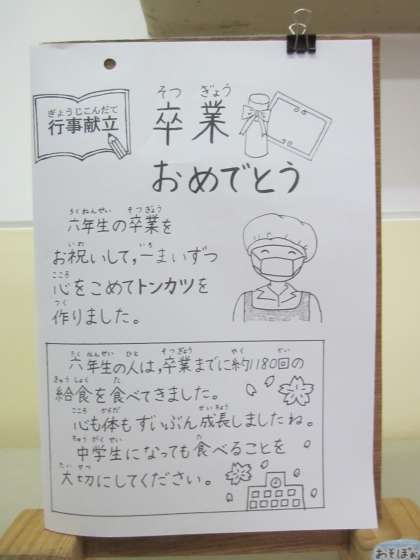 ぎょうじこんだて
行事献立
そつ ぎょう
卒業
おめでとう
ろくねんせい そつぎょう
六年生の卒業を
いわ いち
お祝いして,一まいずつ
こころ
心をこめてトンカツを
つく
作りました。
ろくねんせい ひと そつぎょう やく かい
六年生の人は,卒業までに約1180回の
きゅうしょく た
給食を食べてきました。
こころ からだ せいちょう
心も体もずいぶん成長しましたね。
ちゅうがくせい た
中学生になっても食べることを
たいせつ
大切にしてください。